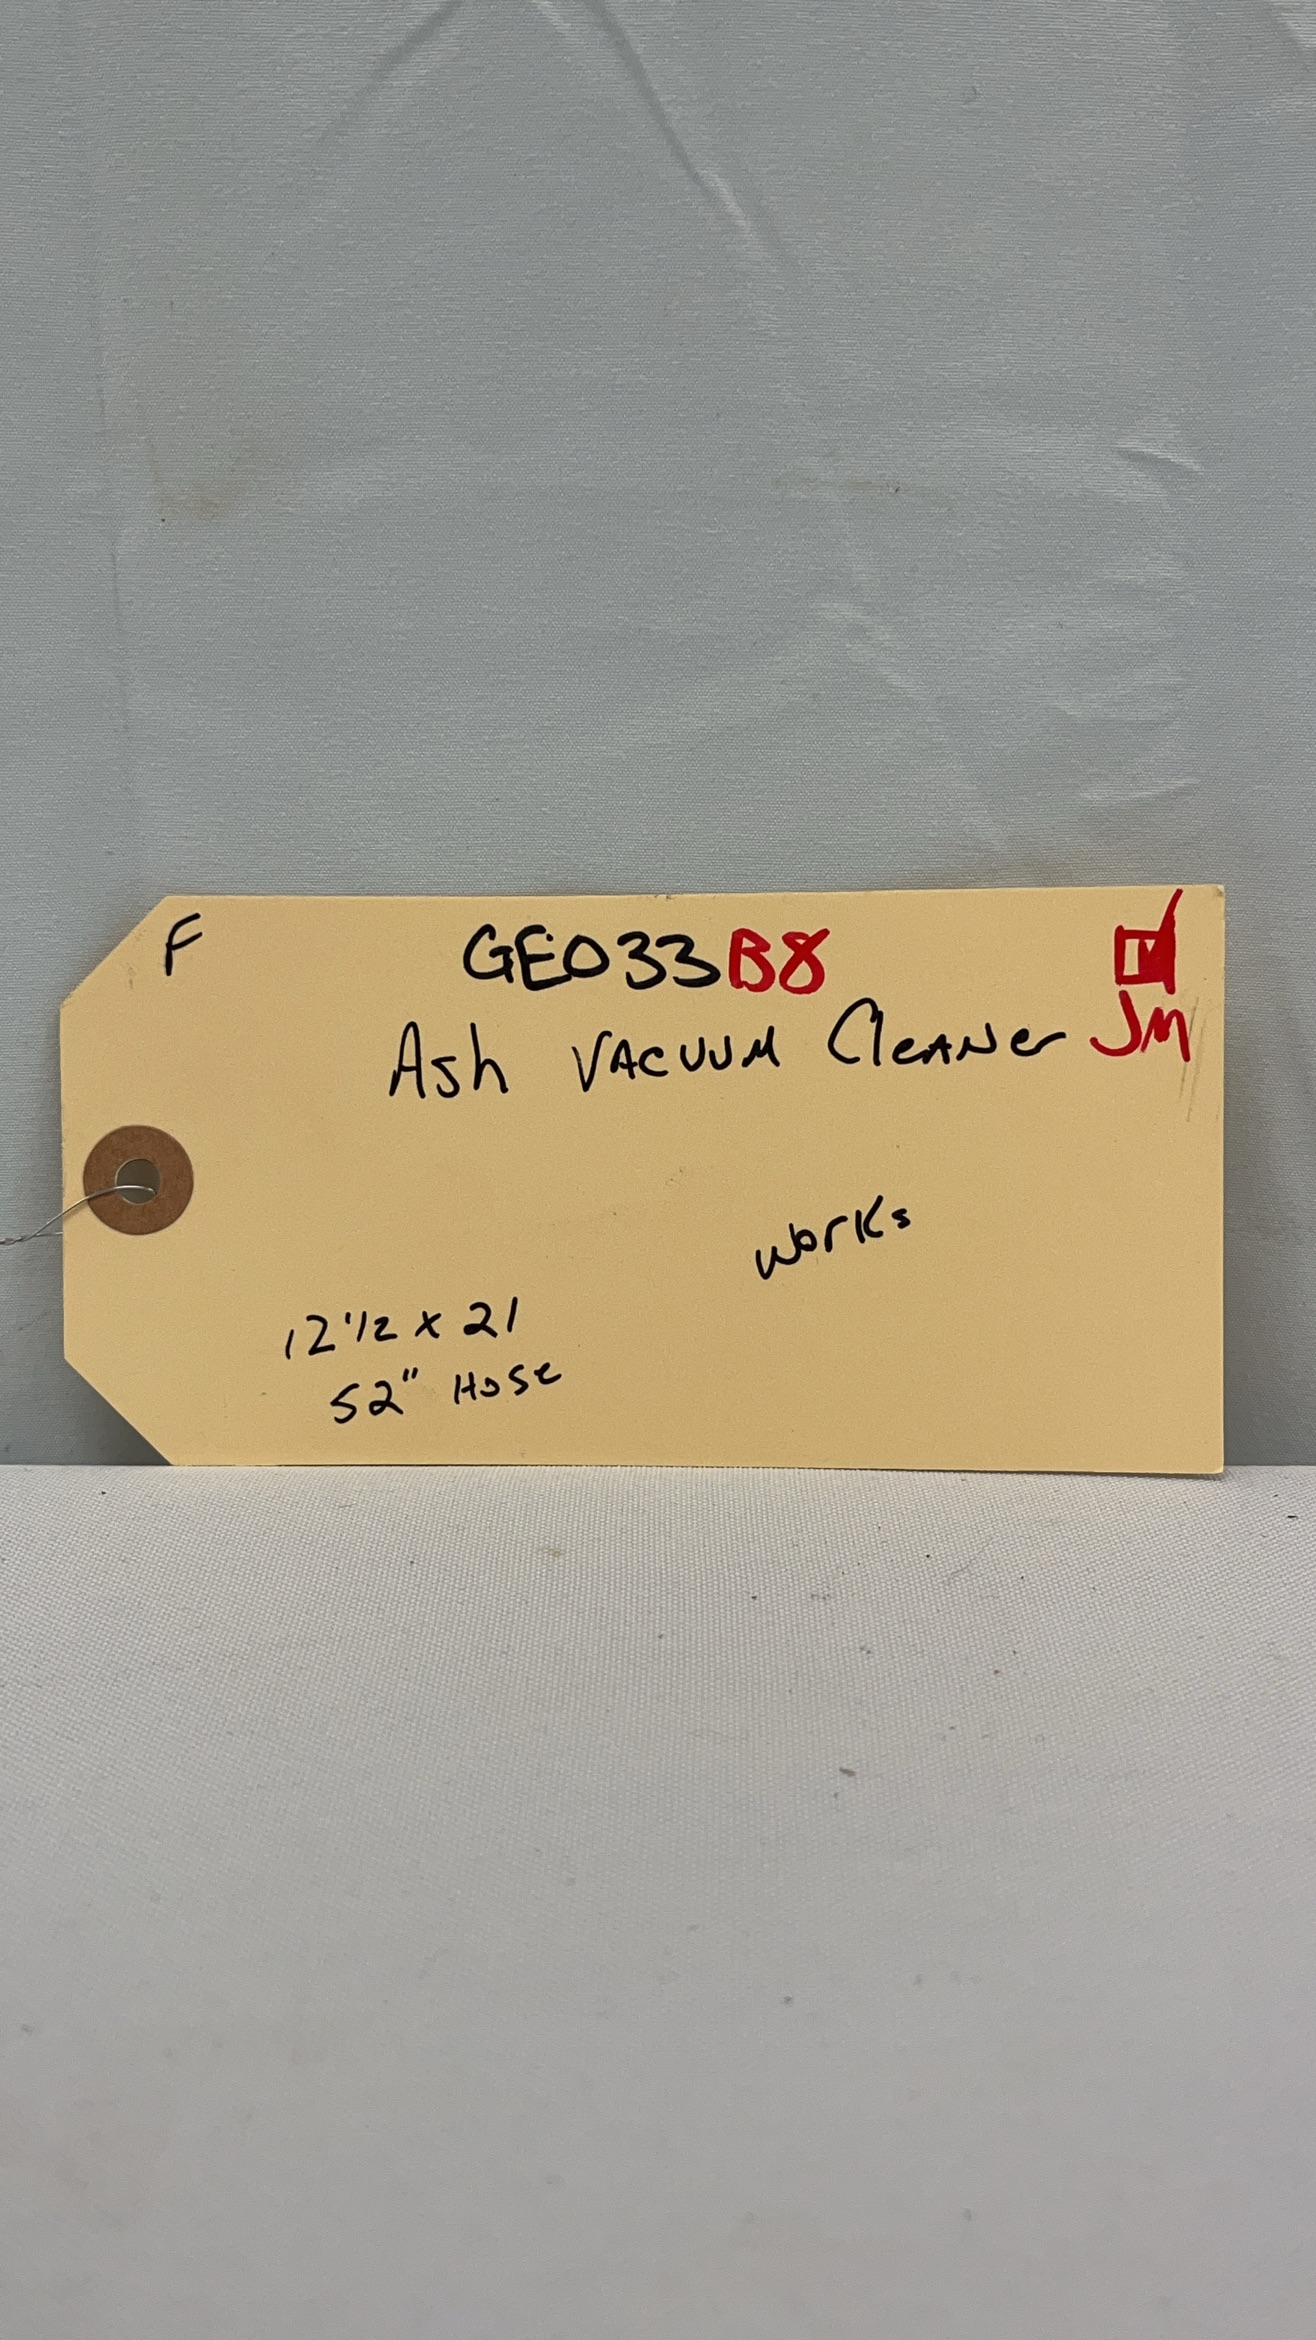 F GEO33B8
Ash VACUUM Cleaner JM
Works
12 1/2 x 21
52" Hose